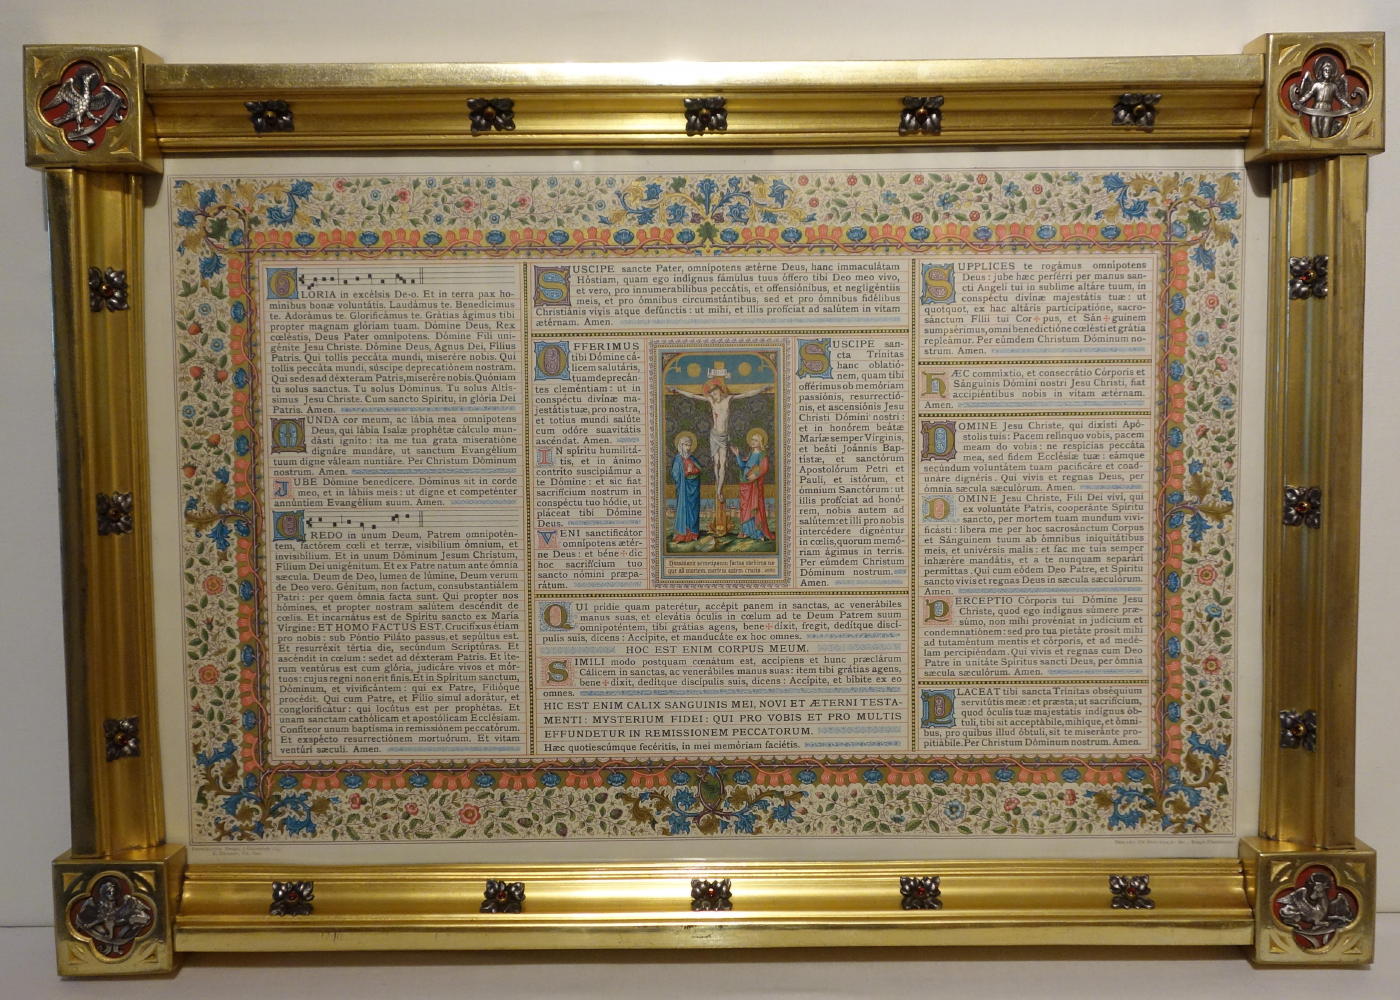 GLORIA in excélsis De-o. Et in terra pax ho-
minibus bonæ voluntátis. Laudámus te. Benedicimus
te. Adorámus te. Glorificámus te. Grátias ágimus tibi
propter magnam glóriam tuam. Dómine Deus, Rex
cœléstis, Deus Pater omnípotens. Dómine Fili uni-
génite Jesu Christe. Dómine Deus, Agnus Dei, Fílius
Patris. Qui tollis peccáta mundi, miserére nobis. Qui
tollis peccáta mundi, súscipe deprecatiónem nostram.
Qui sedes ad déxteram Patris, miserére nobis. Quóniam
tu solus sanctus. Tu solus Dóminus. Tu solus Altís-
simus Jesu Christe. Cum sancto Spíritu, in glória Dei
Patris. Amen.
MUNDA cor meum, ac lábia mea omnípotens
Deus, qui lábia Isaíæ prophétæ cálculo mun-
dásti igníto: ita me tua grata miseratióne
dignáre mundáre, ut sanctum Evangélium
tuum digne váleam nuntiáre. Per Christum Dóminum
nostrum. Amen.
JUBE Dómine benedícere. Dóminus sit in corde
meo, et in lábiis meis: ut digne et competénter
annúntiem Evangélium suum. Amen.
CREDO in unum Deum, Patrem omnipotén-
tem, factórem cœli et terræ, visibílium ómnium, et
invisibílium. Et in unum Dóminum Jesum Christum,
Fílium Dei unigénitum. Et ex Patre natum ante ómnia
sæcula. Deum de Deo, lumen de lúmine, Deum verum
de Deo vero. Génitum, non factum, consubstantiálem
Patri: per quem ómnia facta sunt. Qui propter nos
hómines, et propter nostram salútem descéndit de
cœlis. Et incarnátus est de Spíritu sancto ex María
Vírgine: ET HOMO FACTUS EST. Crucifíxus étiam
pro nobis: sub Póntio Piláto passus, et sepúltus est.
Et resurréxit tértia die, secúndum Scriptúras. Et
ascéndit in cœlum: sedet ad déxteram Patris. Et íte-
rum ventúrus est cum glória, judicáre vivos et mór-
tuos: cujus regni non erit finis. Et in Spíritum sanctum,
Dóminum, et vivificántem: qui ex Patre, Filióque
procédit. Qui cum Patre, et Fílio simul adorátur, et
conglorificátur: qui locútus est per prophétas. Et
unam sanctam cathólicam et apostólicam Ecclésiam.
Confíteor unum baptísma in remissiónem peccatórum.
Et exspécto resurrectiónem mortuórum. Et vitam
ventúri sæculi. Amen.
SUSCIPE sancte Pater, omnípotens ætérne Deus, hanc immaculátam
Hóstiam, quam ego indígnus fámulus tuus óffero tibi Deo meo vivo,
et vero, pro innumerabílibus peccátis, et offensiónibus, et negligéntiis
meis, et pro ómnibus circumstántibus, sed et pro ómnibus fidélibus
Christiánis vivis atque defúnctis: ut mihi, et illis profíciat ad salútem in vitam
ætérnam. Amen.
OFFERIMUS
tibi Dómine cá-
licem salutáris,
tuam deprecán-
tes cleméntiam: ut in
conspéctu divínæ ma-
jestátis tuæ, pro nostra,
et totíus mundi salúte
cum odóre suavitátis
ascéndat. Amen.
IN spíritu humilitá-
tis, et in ánimo
contríto suscipiámur a
te Dómine: et sic fiat
sacrifícium nostrum in
conspéctu tuo hódie, ut
pláceat tibi Dómine
Deus.
VENI sanctificátor
omnípotens ætér-
ne Deus: et béne✠dic
hoc sacrifícium tuo
sancto nómini præpa-
rátum.
INRI
SUSCIPE san-
cta Trínitas
hanc oblatió-
nem, quam tibi
offérimus ob memóriam
passiónis, resurrectió-
nis, et ascensiónis Jesu
Christi Dómini nostri:
et in honórem beátæ
Maríæ semper Vírginis,
et beáti Joánnis Bap-
tístæ, et sanctórum
Apostolórum Petri et
Pauli, et istórum, et
ómnium Sanctórum: ut
illis profíciat ad honó-
rem, nobis autem ad
salútem: et illi pro nobis
intercédere dignéntur
in cœlis, quorum memó-
riam ágimus in terris.
Per eúmdem Christum
Dóminum nostrum.
Amen.
QUI prídie quam paterétur, accépit panem in sanctas, ac venerábiles
manus suas, et elevátis óculis in cœlum ad te Deum Patrem suum
omnipoténtem, tibi grátias agens, bene✠díxit, fregit, dedítque discí-
pulis suis, dicens: Accípite, et manducáte ex hoc omnes.
HOC EST ENIM CORPUS MEUM.
SIMILI modo postquam cœnátum est, accípiens et hunc præclárum
Cálicem in sanctas, ac venerábiles manus suas: item tibi grátias agens,
bene✠díxit, dedítque discípulis suis, dicens: Accípite, et bíbite ex eo
omnes.
HIC EST ENIM CALIX SANGUINIS MEI, NOVI ET ÆTERNI TESTA-
MENTI: MYSTERIUM FIDEI: QUI PRO VOBIS ET PRO MULTIS
EFFUNDETUR IN REMISSIONEM PECCATORUM.
Hæc quotiescúmque fecéritis, in mei memóriam faciétis.
SUPPLICES te rogámus omnípotens
Deus: jube hæc perférri per manus san-
cti Angeli tui in sublíme altáre tuum, in
conspéctu divínæ majestátis tuæ: ut
quotquot, ex hac altáris participatióne, sacro-
sánctum Fílii tui Cor✠pus, et Sán✠guinem
sumpsérimus, omni benedictióne cœlésti et grátia
repleámur. Per eúmdem Christum Dóminum no-
strum. Amen.
HÆC commíxtio, et consecrátio Córporis et
Sánguinis Dómini nostri Jesu Christi, fiat
accipiéntibus nobis in vitam ætérnam.
Amen.
DOMINE Jesu Christe, qui dixísti Apó-
stolis tuis: Pacem relínquo vobis, pacem
meam do vobis: ne respícias peccáta
mea, sed fidem Ecclésiæ tuæ: eámque
secúndum voluntátem tuam pacificáre et coad-
unáre dignéris. Qui vivis et regnas Deus, per
ómnia sæcula sæculórum. Amen.
DOMINE Jesu Christe, Fili Dei vivi, qui
ex voluntáte Patris, cooperánte Spíritu
sancto, per mortem tuam mundum vivi-
ficásti: líbera me per hoc sacrosánctum Corpus
et Sánguinem tuum ab ómnibus iniquitátibus
meis, et univérsis malis: et fac me tuis semper
inhærére mandátis, et a te nunquam separári
permíttas. Qui cum eódem Deo Patre, et Spíritu
sancto vivis et regnas Deus in sæcula sæculórum.
Amen.
PERCEPTIO Córporis tui Dómine Jesu
Christe, quod ego indígnus súmere præ-
súmo, non mihi provéniat in judícium et
condemnatiónem: sed pro tua pietáte prosit mihi
ad tutaméntum mentis et córporis, et ad medé-
lam percipiéndam. Qui vivis et regnas cum Deo
Patre in unitáte Spíritus sancti Deus, per ómnia
sæcula sæculórum. Amen.
PLACEAT tibi sancta Trínitas obséquium
servitútis meæ: et præsta; ut sacrifícium,
quod óculis tuæ majestátis indígnus ób-
tuli, tibi sit acceptábile, mihíque, et ómni-
bus, pro quibus illud óbtuli, sit te miseránte pro-
pitiábile. Per Christum Dóminum nostrum. Amen.